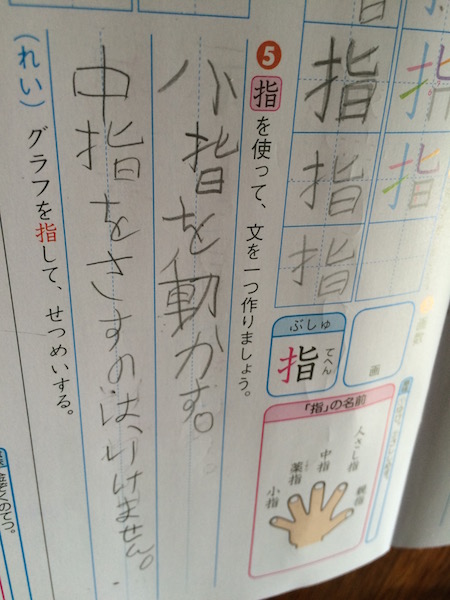 指
指
指
指
指
画
ぶしゅ
指
てへん
「指」の名前
人さし指
中指
薬指
小指
❺指を使って、文を一つ作りましょう。
小指を動かす。
中指をさすのは、いけません。
(れい) グラフを指して、せつめいする。